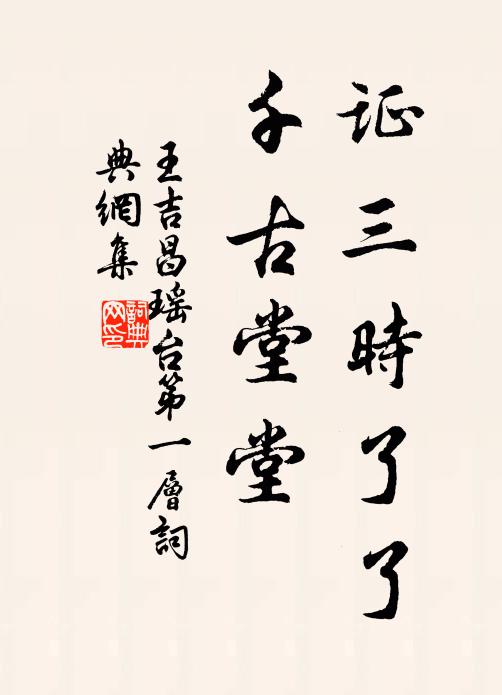 证三時了了
千古堂堂
王吉昌瑶台第一層詞
典網集
詞典網印